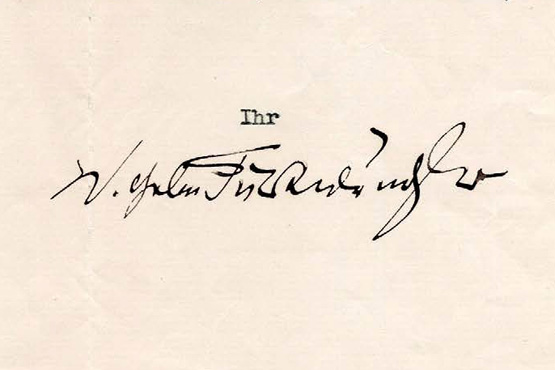 Ihr
Wilhelm Furtwängler